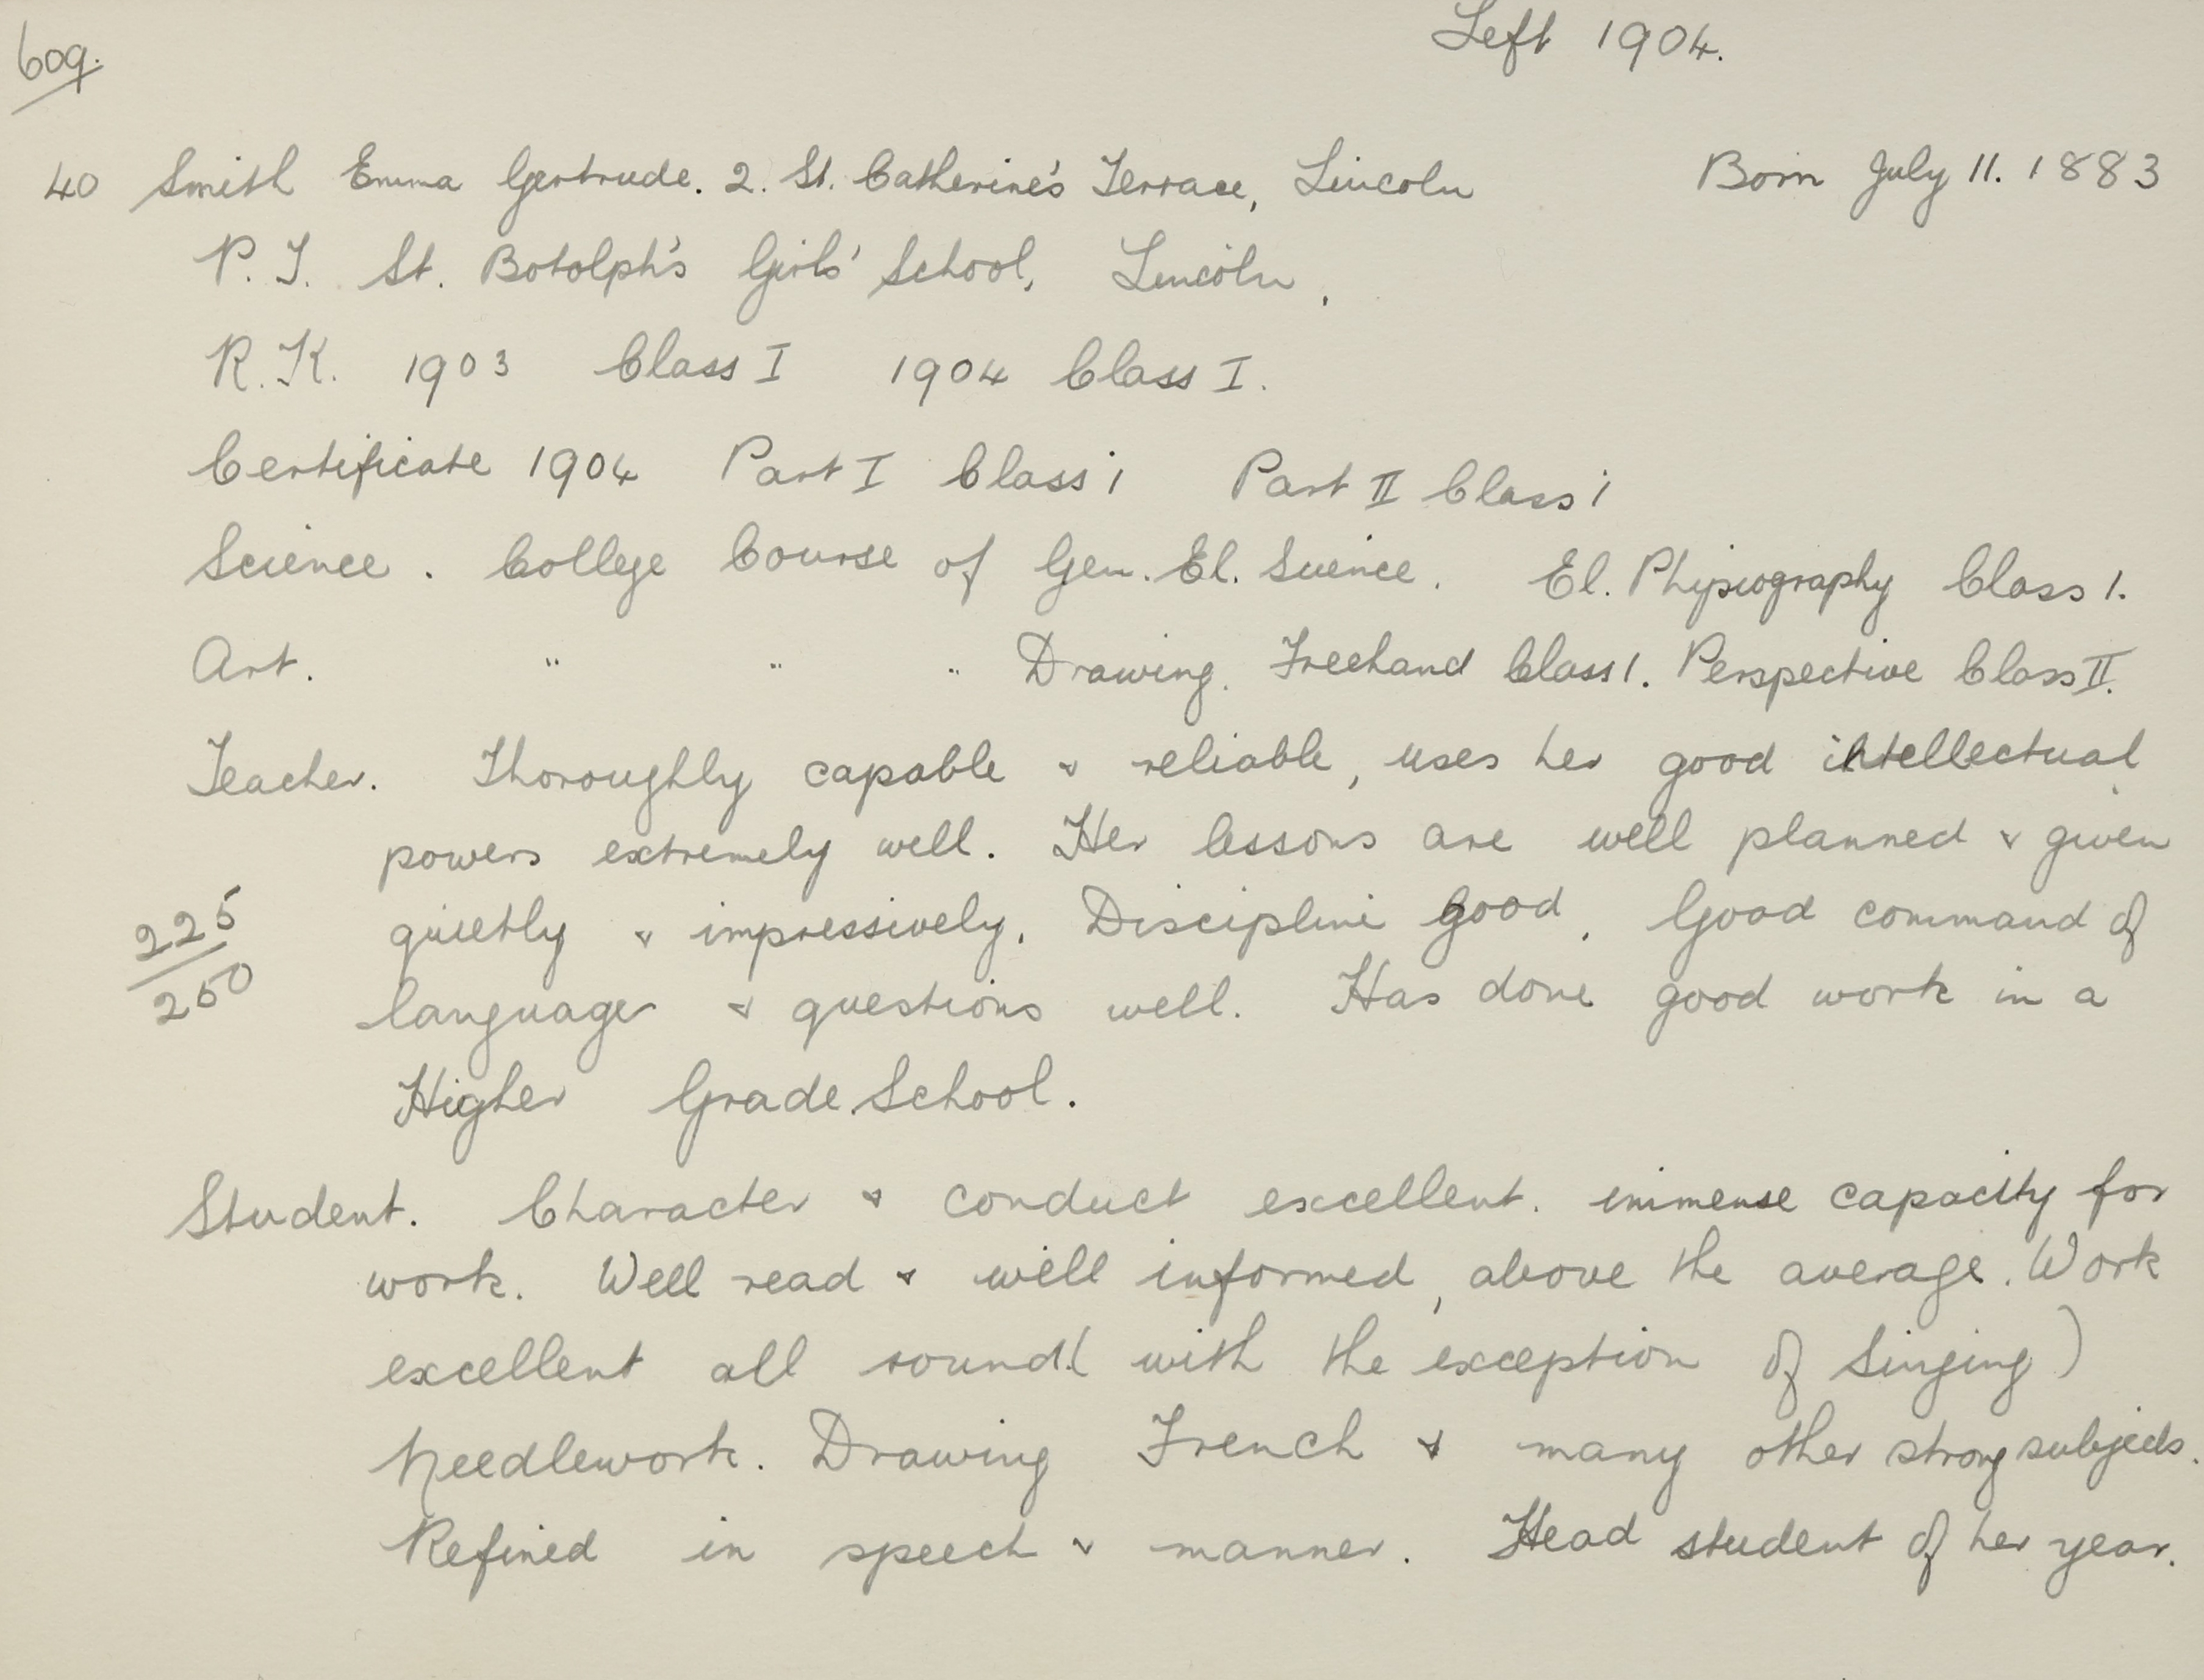 609.
Left 1904.
40 Smith Emma Gertrude. 2. St. Catherine's Terrace, Lincoln Born July 11. 1883
P.T. St. Botolph's Girls' School, Lincoln.
R.K. 1903 Class I 1904 Class I.
Certificate 1904 Part I Class 1 Part II Class 1
Science. College Course of Gen. El. Science. El. Physiography Class 1.
Art. " " " Drawing. Freehand Class 1. Perspective Class II.
Teacher. Thoroughly capable & reliable, uses her good intellectual
powers extremely well. Her lessons are well planned & given
quietly & impressively. Discipline good. Good command of
language & questions well. Has done good work in a
Higher Grade School.
225
250
Student. Character & conduct excellent. immense capacity for
work. Well read & well informed, above the average. Work
excellent all round. (with the exception of Singing)
Needlework. Drawing French & many other strong subjects.
Refined in speech & manner. Head student of her year.